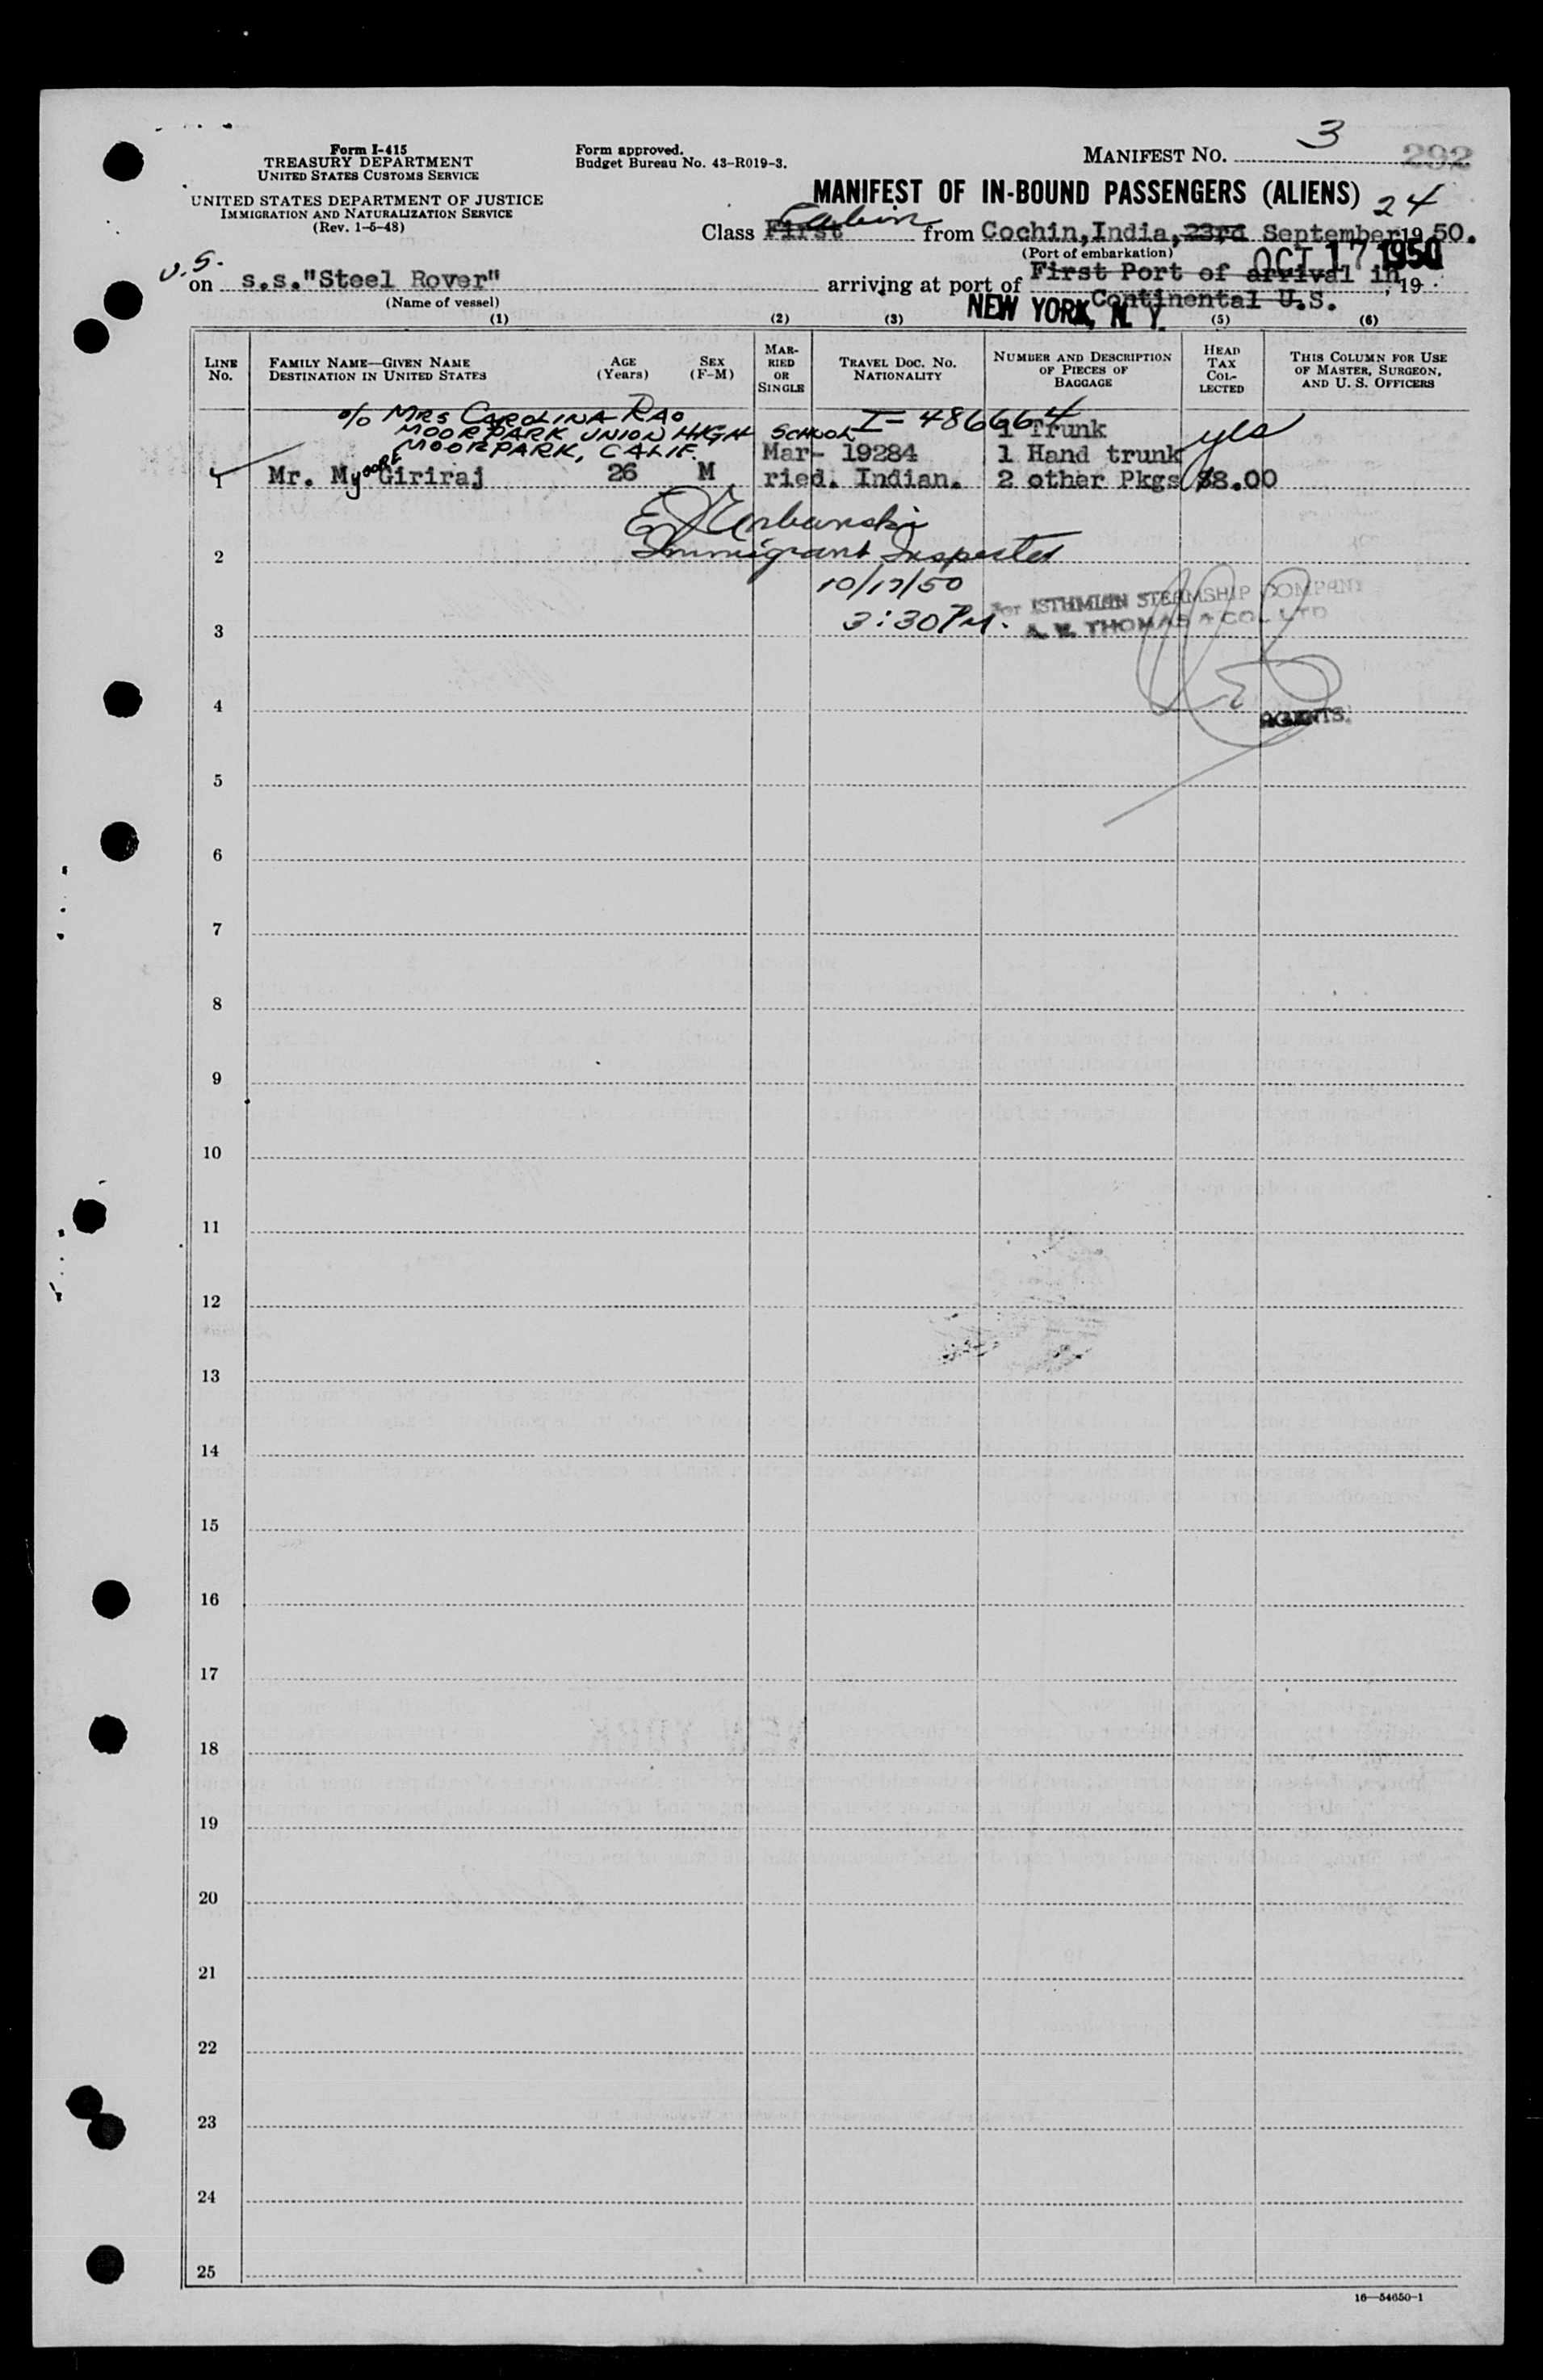 Form I-415
TREASURY DEPARTMENT
UNITED STATES CUSTOMS SERVICE
UNITED STATES DEPARTMENT OF JUSTICE
IMMIGRATION AND NATURALIZATION SERVICE
(Rev. 1-5-48)
Form approved.
Budget Bureau No. 43-R019-3.
MANIFEST NO. 3
292
MANIFEST OF IN-BOUND PASSENGERS (ALIENS)
24
Cabin
Class First from Cochin, India, 23rd September 19 50.
(Port of embarkation)
OCT 17 1950
U.S.
on s.s."Steel Rover" arriving at port of First Port of arrival in, 19
Continental U.S.
(Name of vessel)
NEW YORK, N. Y.
(1) (2) (3) (5) (6)
LINE No.
FAMILY NAME—GIVEN NAME
DESTINATION IN UNITED STATES
AGE (Years)
SEX (F-M)
MAR-RIED OR SINGLE
TRAVEL DOC. NO.
NATIONALITY
NUMBER AND DESCRIPTION
OF PIECES OF
BAGGAGE
HEAD TAX COL-LECTED
THIS COLUMN FOR USE
OF MASTER, SURGEON,
AND U. S. OFFICERS
c/o MRS CAROLINA RAO
MOORPARK UNION HIGH SCHOOL
MOORPARK, CALIF.
I-486664
1 Trunk
Mar- 19284 1 Hand trunk yes
1 Mr. Giriraj 26 M ried. Indian. 2 other Pkgs $8.00
E J Urbanski
2 Immigrant Inspector
10/17/50
3:30 PM.
For ISTHMIAN STEAMSHIP COMPANY
3 A. V. THOMAS & CO. LTD
4
AGENTS.
5
6
7
8
9
10
11
12
13
14
15
16
17
18
19
20
21
22
23
24
25
16—54650-1